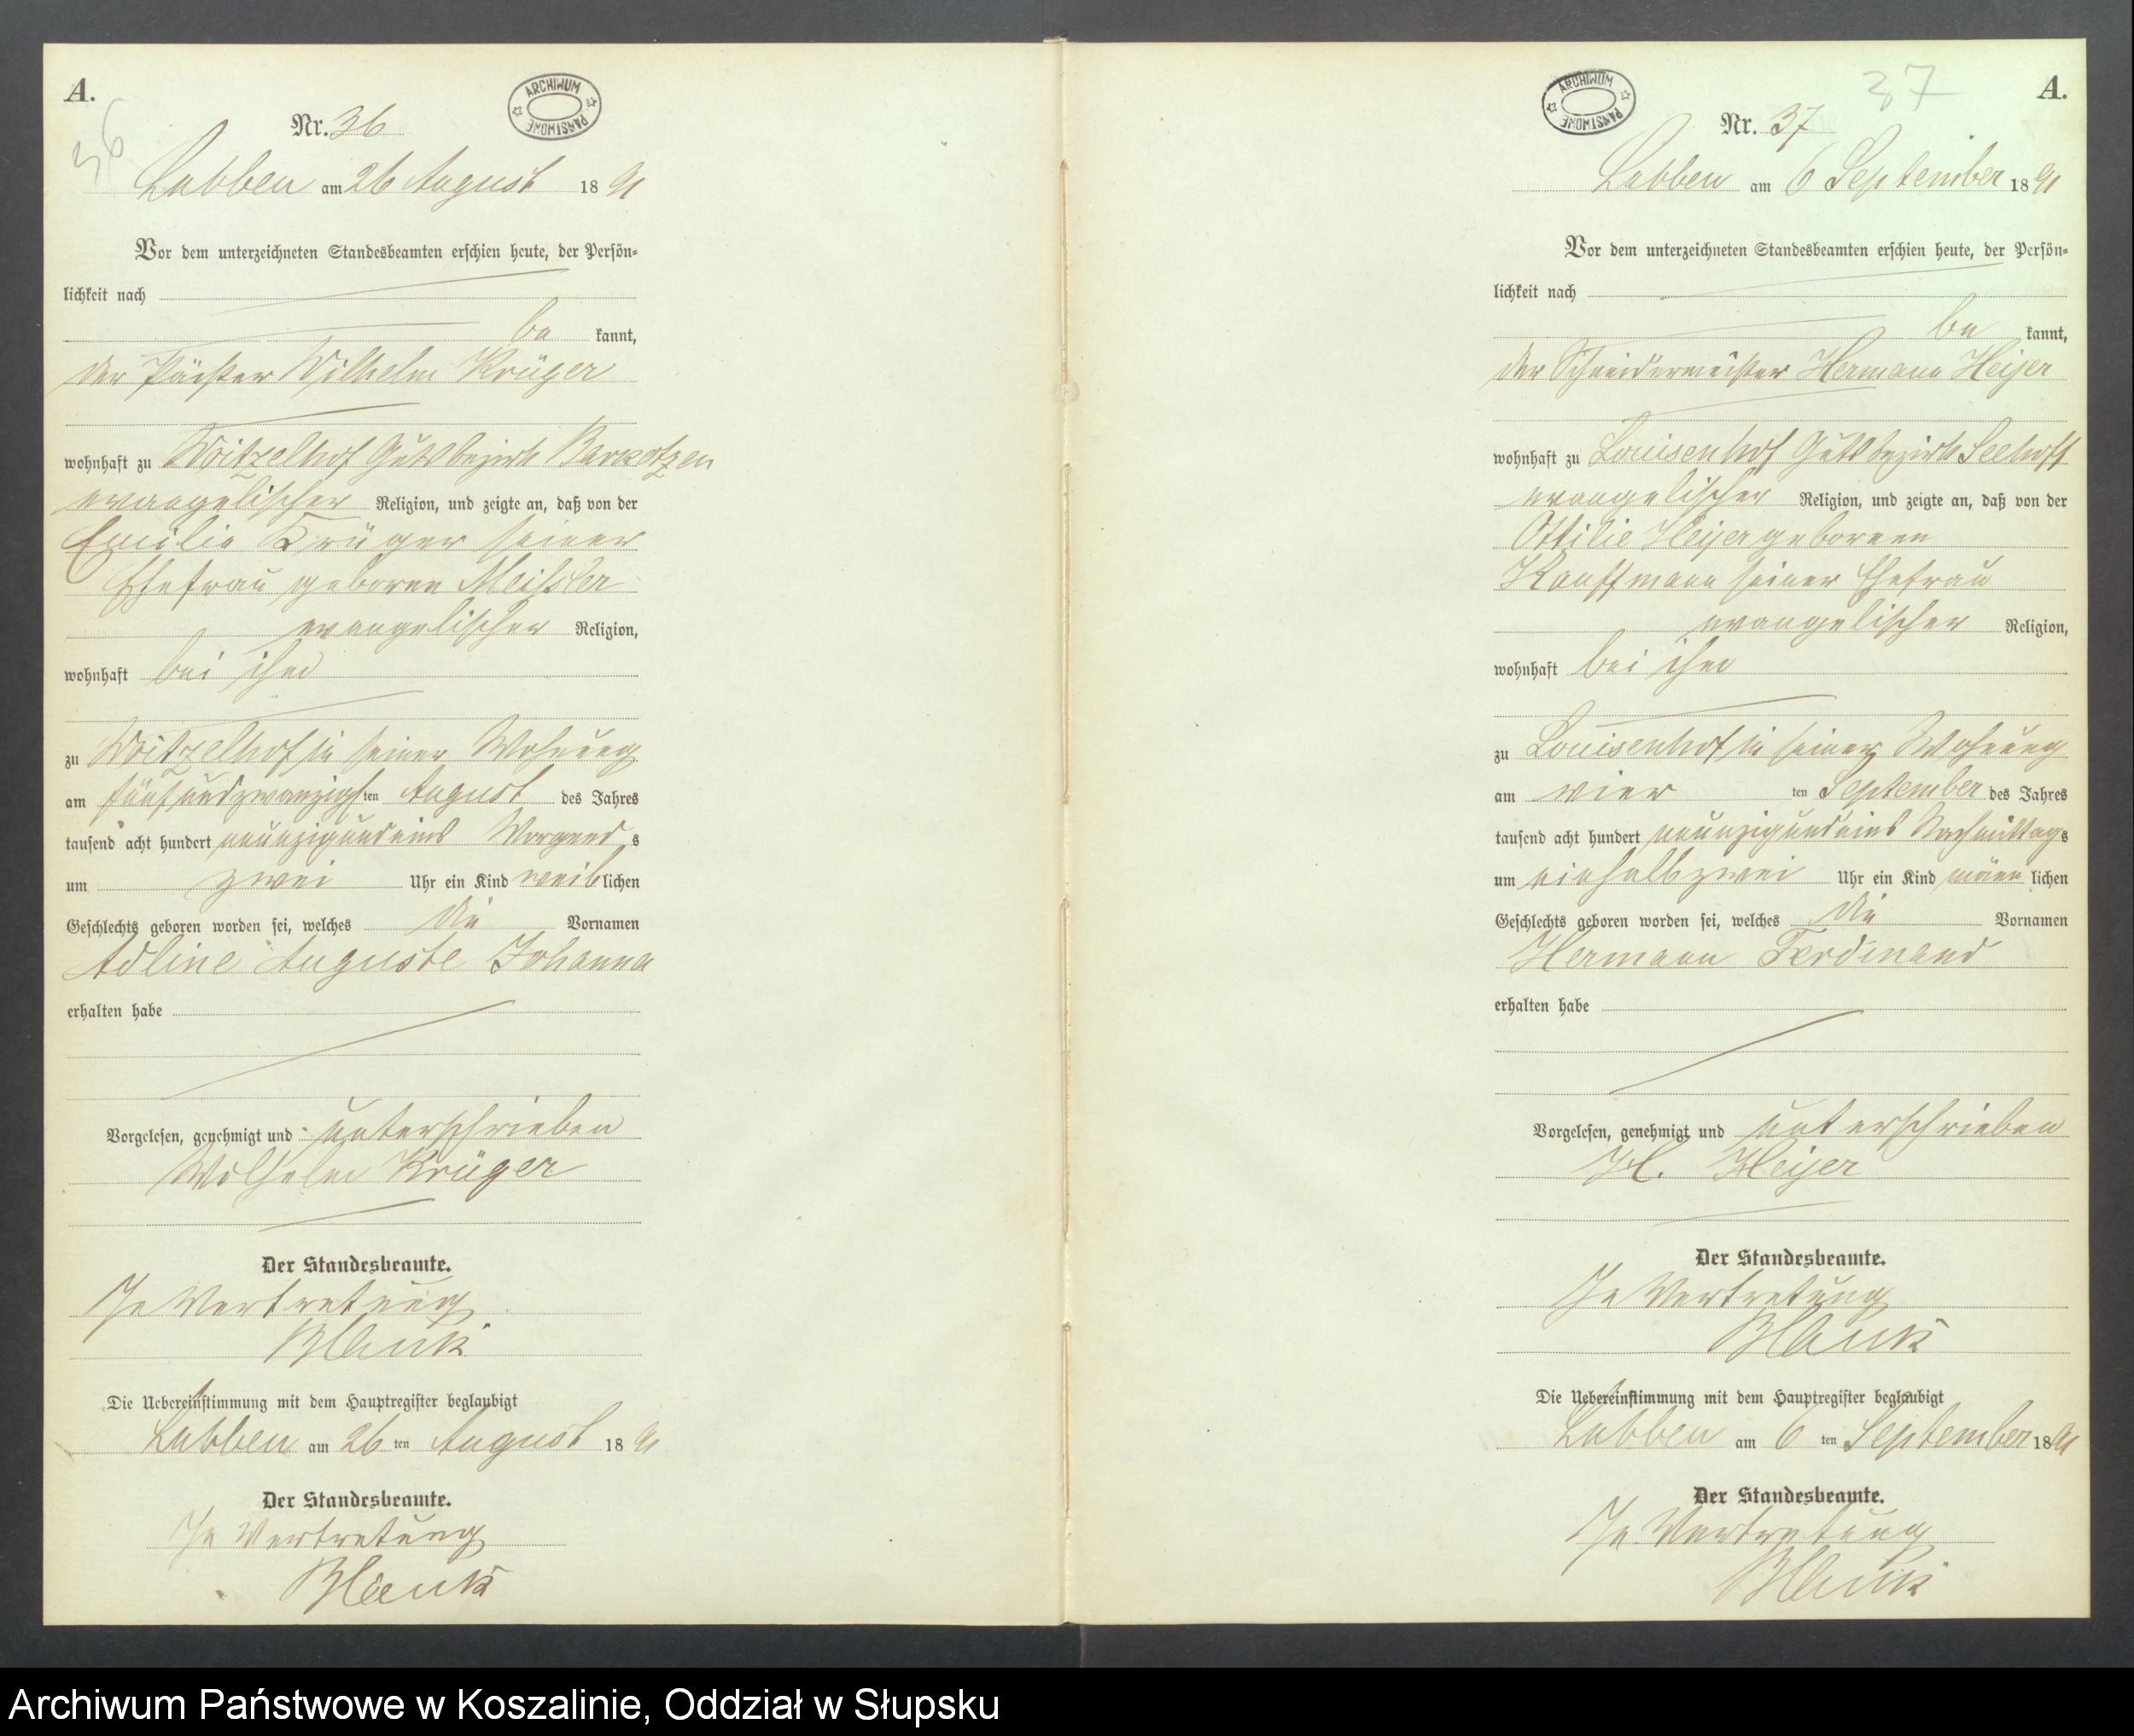 A.
36
Nr. 36
ARCHIWUM PAŃSTWOWE
Labben am 26 August 1891
Vor dem unterzeichneten Standesbeamten erschien heute, der Persön-
lichkeit nach
be kannt,
der Pächter Wilhelm Krüger
wohnhaft zu Woitzelhof Gutsbezirk Barkotzen
evangelischer Religion, und zeigte an, daß von der
Emilie Krüger seiner
Ehefrau geborene Meissler
evangelischer Religion,
wohnhaft bei ihm
zu Woitzelhof in seiner Wohnung
am fünfundzwanzigsten August des Jahres
tausend acht hundert neunzigundeins Morgends
um zwei Uhr ein Kind weiblichen
Geschlechts geboren worden sei, welches die Vornamen
Adline Auguste Johanna
erhalten habe
Vorgelesen, genehmigt und unterschrieben
Wilhelm Krüger
Der Standesbeamte.
In Vertretung
Blank
Die Uebereinstimmung mit dem Hauptregister beglaubigt
Labben am 26 ten August 1891
Der Standesbeamte.
In Vertretung
Blank
A.
37
Nr. 37
ARCHIWUM PAŃSTWOWE
Labben am 6 September 1891
Vor dem unterzeichneten Standesbeamten erschien heute, der Persön-
lichkeit nach
be kannt,
der Schneidermeister Hermann Heyer
wohnhaft zu Louisenhof Gutsbezirk Seehoff
evangelischer Religion, und zeigte an, daß von der
Ottilie Heyer geborenen
Kauffmann seiner Ehefrau
evangelischer Religion,
wohnhaft bei ihm
zu Louisenhof in seiner Wohnung
am vier ten September des Jahres
tausend acht hundert neunzigundeins Nachmittags
um einhalbzwei Uhr ein Kind männ lichen
Geschlechts geboren worden sei, welches die Vornamen
Hermann Ferdinand
erhalten habe
Vorgelesen, genehmigt und unterschrieben
H. Heyer
Der Standesbeamte.
In Vertretung
Blank
Die Uebereinstimmung mit dem Hauptregister beglaubigt
Labben am 6 ten September 1891
Der Standesbeamte.
In Vertretung
Blank
Archiwum Państwowe w Koszalinie, Oddział w Słupsku